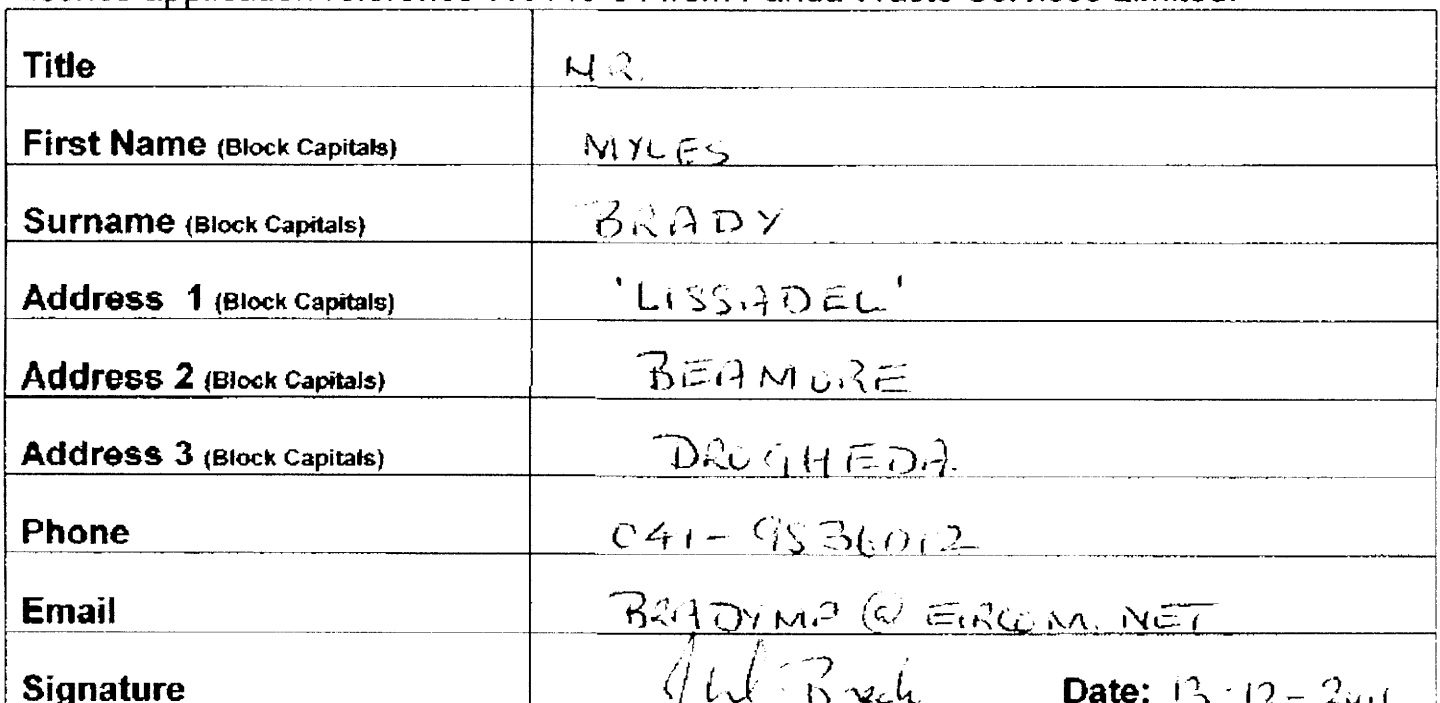 Title MR.
First Name (Block Capitals) MYLES
Surname (Block Capitals) BRADY
Address 1 (Block Capitals) 'LISSADEL'
Address 2 (Block Capitals) BEAMORE
Address 3 (Block Capitals) DROGHEDA.
Phone 041-9836012
Email BRADYMP@EIRCOM.NET
Signature Brady Date: 13-12-